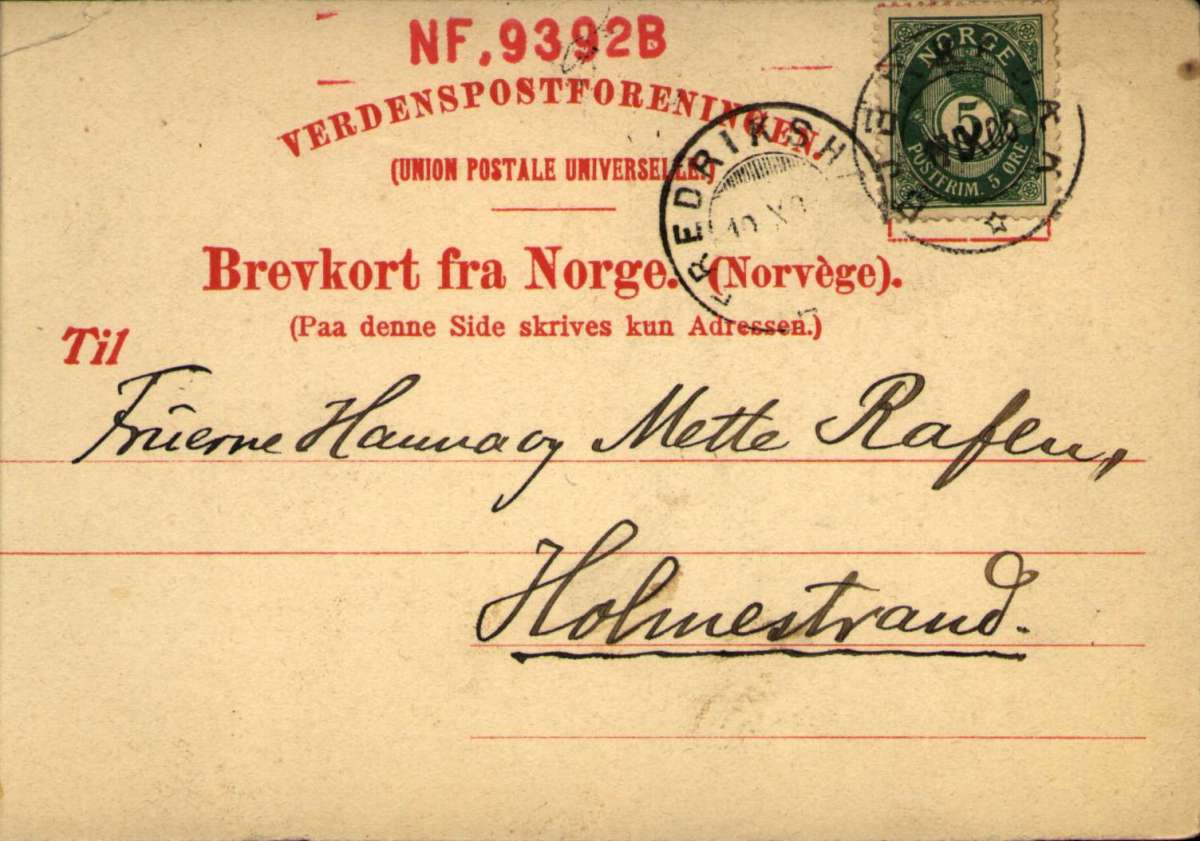 NF.9392B
VERDENSPOSTFORENINGEN.
(UNION POSTALE UNIVERSELLE.)
NORGE
5
POSTFRIM. 5 ØRE
FREDRIKSH
10 X
Brevkort fra Norge. (Norvège).
(Paa denne Side skrives kun Adressen.)
Til
Fruerne Hanna og Mette Rafen,
Holmestrand.